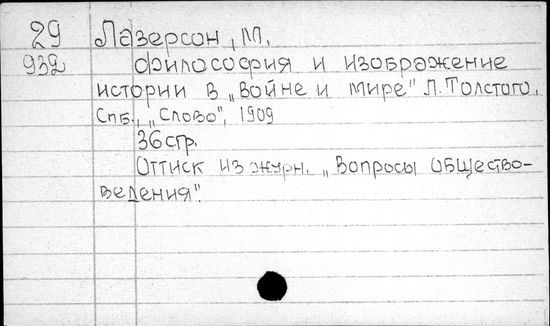 29 Лазерсон, М.
932 Философия и изображение
истории в „Войне и мире" Л. Толстого.
Спб., „Слово", 1909
36 стр.
Оттиск из журн. „Вопросы общество-
ведения".